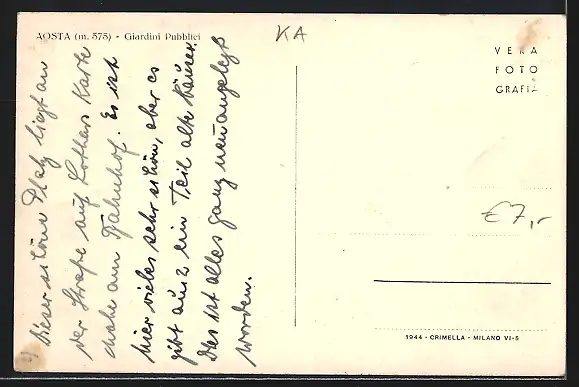 AOSTA (m. 575) - Giardini Pubblici
KA
VERA
FOTO
GRAFIA
Dieser schöne Platz liegt an
der Straße auf Lothars Karte
nahe am Bahnhof. Es ist
hier vieles sehr schön, aber es
gibt auch ein Teil alte Häuser.
Das ist alles ganz neu angelegt
worden.
€7,-
1944 - CRIMELLA - MILANO VI-5